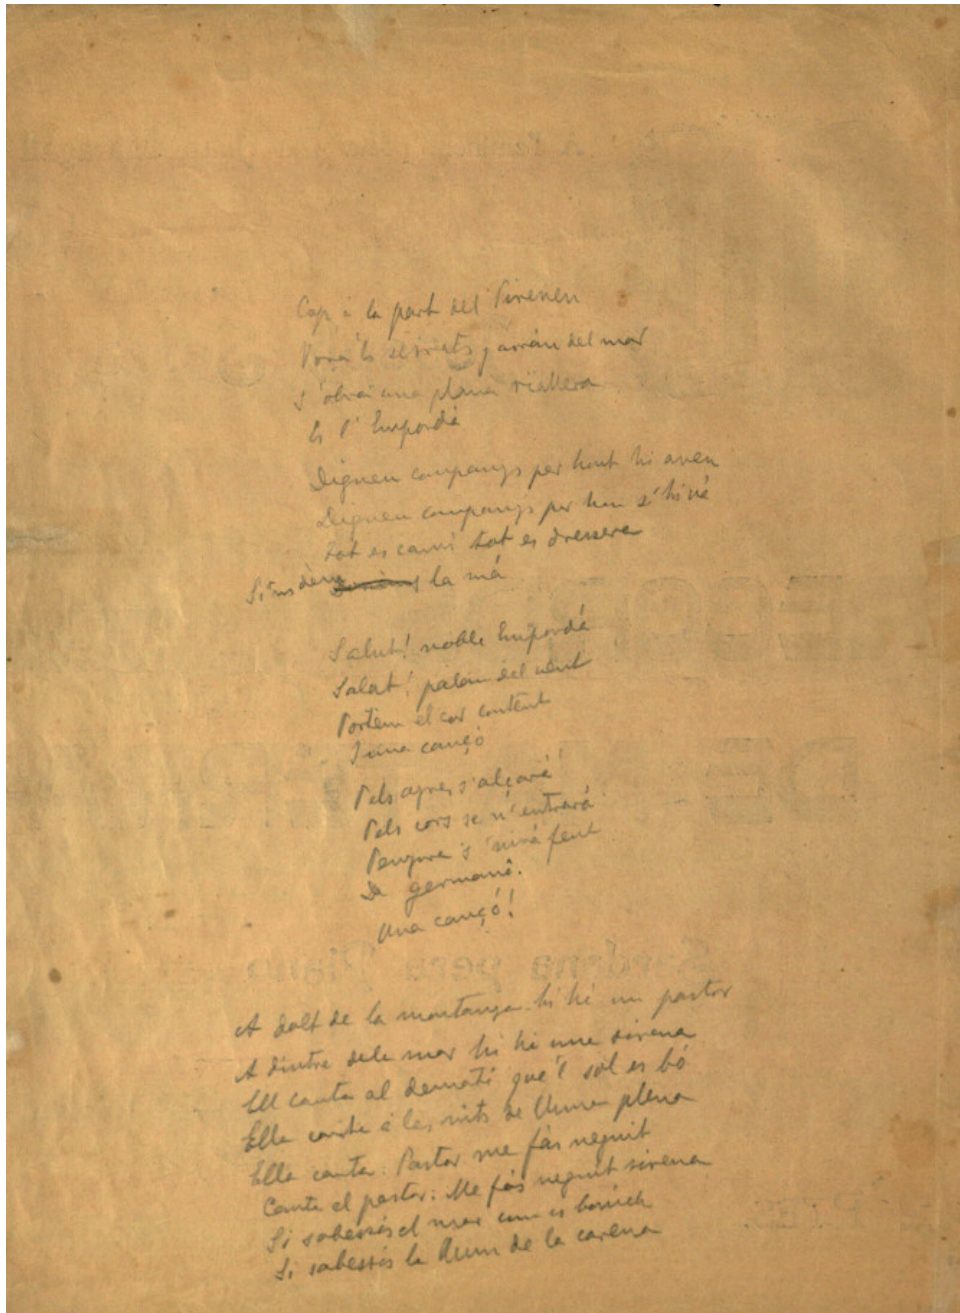 Cap à la part del Pirineu
Vora 'ls serrats y arràn del mar
S'obra una plana riallera
Es l'Empordà
Digueu companys per hont hi aneu
Digueu companys per hon s'hi va
Tot es camí tot es dressera
Si 'ns dèm la mà
Salut! noble Empordà
Salut! palau del vent
Portèm el cor content
I una cançó
Pels ayres s'alçarà
Pels cors se n'entrarà
Penyora s'nirà fent
De germanó.
Una cançó!
A dalt de la montanya hi hà un pastor
A dintre de la mar hi hà una sirena
Ell canta al dematí que'l sol es bó
Ella canta à les nits de lluna plena
Ella canta: Pastor me fàs neguit
Canta el pastor: Me fàs neguit sirena
Si sabessis el mar com es bonich
Si sabessis la llum de la carena
ECORDS
DE
Sardana pera Piano